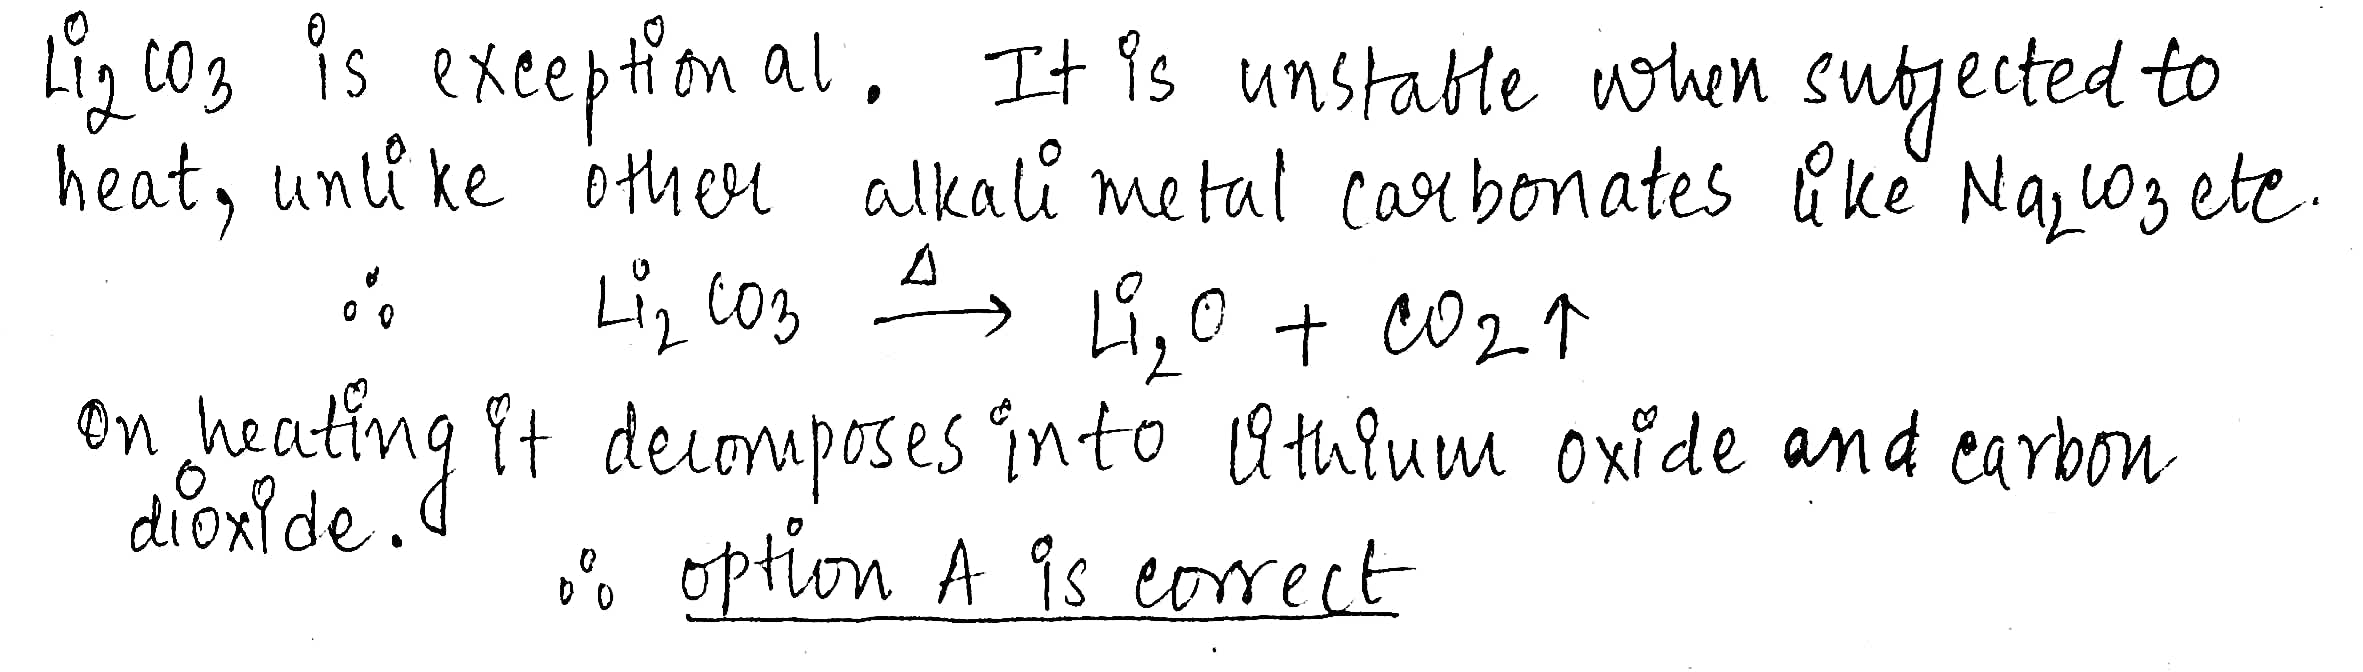 Li₂CO₃ is exceptional. It is unstable when subjected to
heat, unlike other alkali metal carbonates like Na₂CO₃ etc.
∴ Li₂CO₃ —Δ→ Li₂O + CO₂↑
On heating it decomposes into lithium oxide and carbon
dioxide.
∴ option A is correct